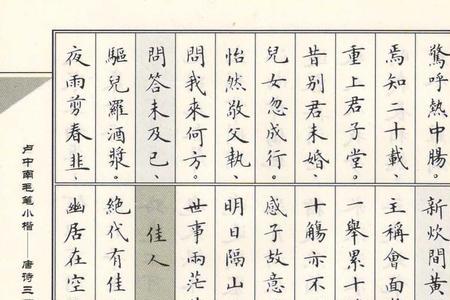 驚呼熱中腸。
焉知二十載、
重上君子堂。
昔别君未婚、
兒女忽成行。
怡然敬父執、
問我來何方。
問答未及已、
驅兒羅酒漿。
夜雨剪春韭、
新炊間黄
主稱會面
一舉累十
十觴亦不
感子故意
明日隔山
世事兩茫
佳人
絶代有佳
幽居在空
卢中南毛笔小楷——唐诗三